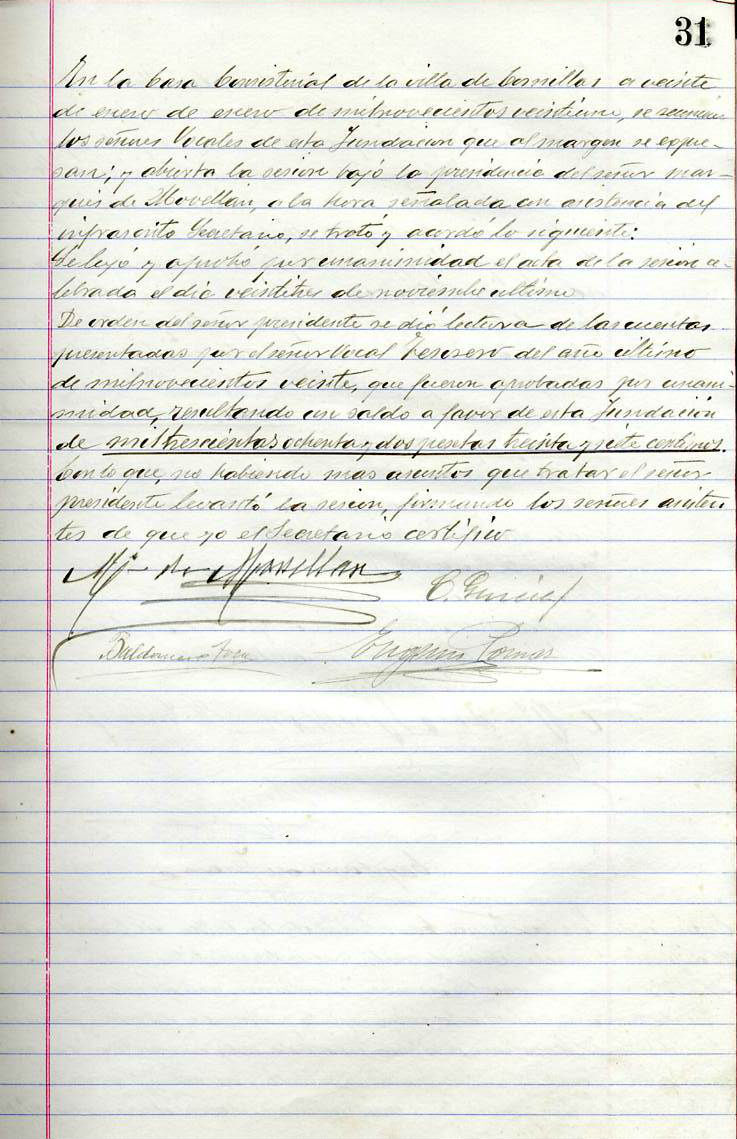 31
En la Casa Consistorial de la villa de Comillas a veinte
de enero de enero de mil novecientos veintiuno, se reunieron
los señores Vocales de esta Fundacion que al margen se expre-
san; y abierta la sesion bajo la presidencia del señor mar-
qués de Movellan, a la hora señalada con asistencia del
infrascrito Secretario, se trató y acordó lo siguiente:
Se leyó y aprobó por unanimidad el acta de la sesion ce-
lebrada el dia veintitres de noviembre ultimo
De orden del señor presidente se dió lectura de las cuentas
presentadas por el señor Vocal Tesorero del año ultimo
de mil novecientos veinte, que fueron aprobadas por unani-
midad, resultando un saldo a favor de esta Fundación
de mil trescientas ochenta y dos pesetas treinta y siete centimos.
Con lo que, no habiendo mas asuntos que tratar el señor
presidente levantó la sesion, firmando los señores asisten
tes de que yo el Secretario certifico
Ms. de Movellan
C.
Baldomero
Eugenio Pomar